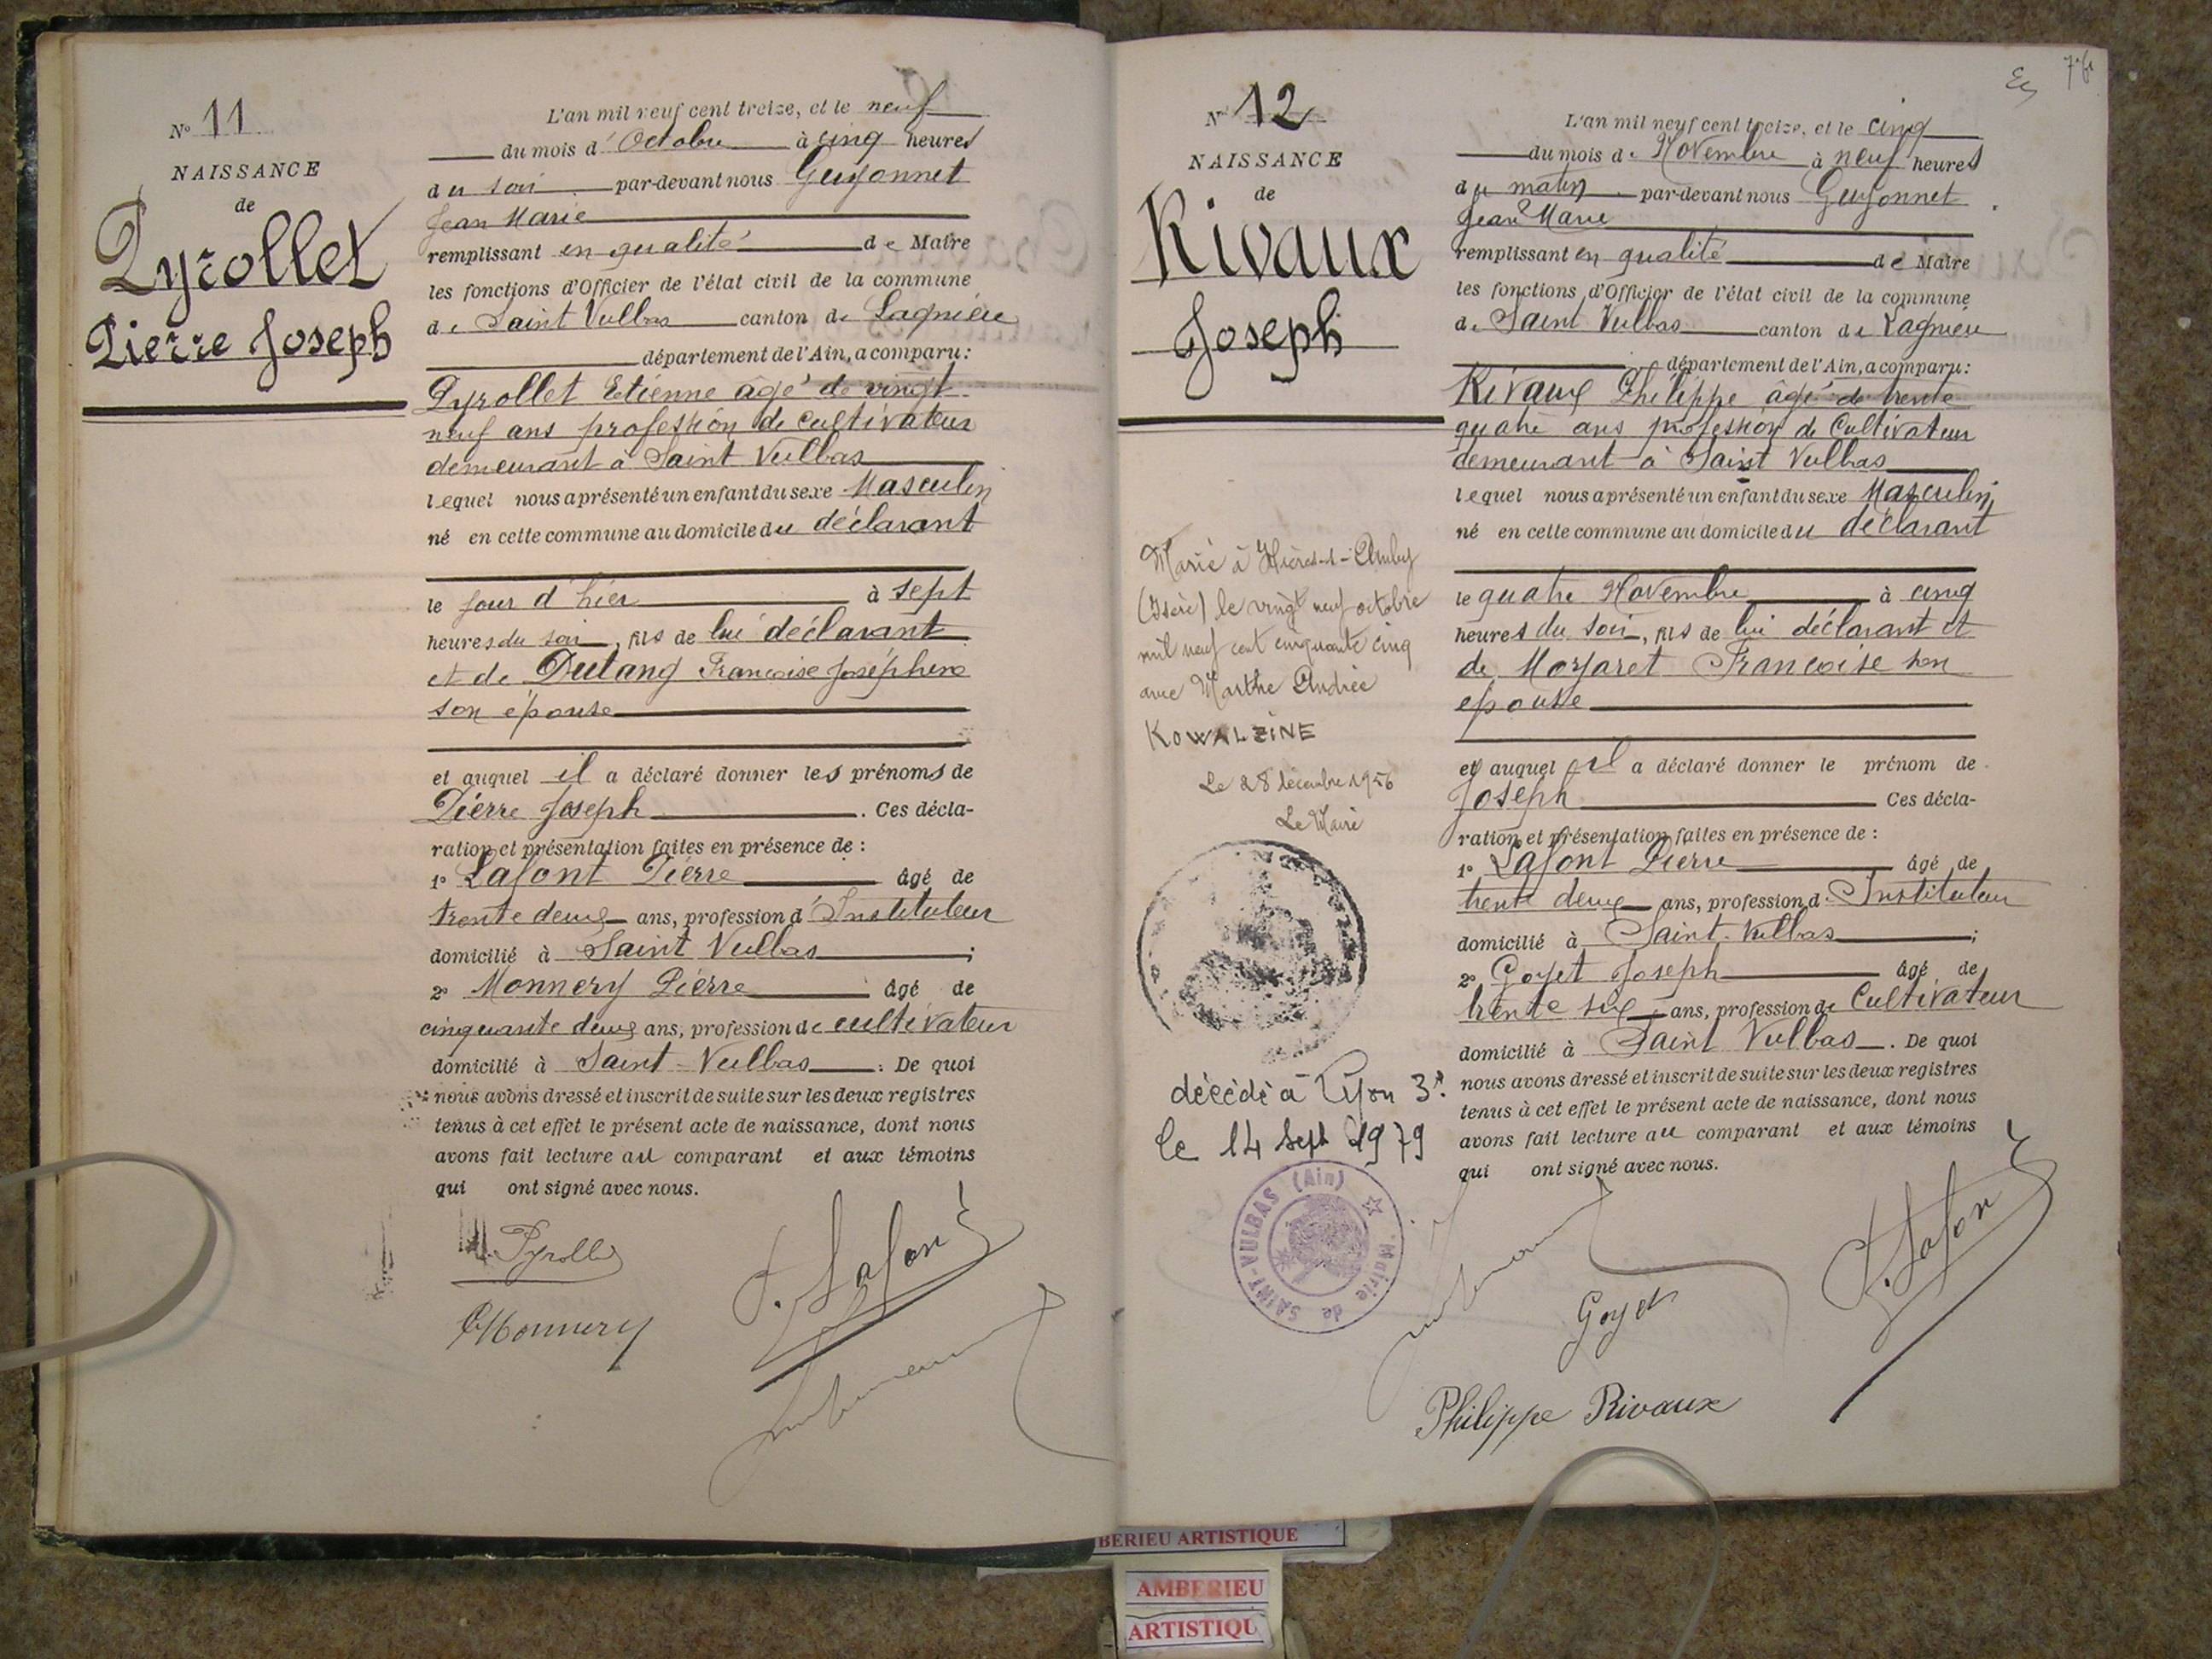 N° 11
NAISSANCE
de
Pyrollet
Pierre Joseph
L'an mil neuf cent treize, et le neuf
du mois d'Octobre à cinq heures
du soir par-devant nous Guyonnet
Jean Marie
remplissant en qualité de Maire
les fonctions d'Officier de l'état civil de la commune
de Saint Vulbas canton de Lagnieu
département de l'Ain, a comparu:
Pyrollet Etienne âgé de vingt
neuf ans profession de cultivateur
demeurant à Saint Vulbas
lequel nous a présenté un enfant du sexe Masculin
né en cette commune au domicile du déclarant
le jour d'hier à sept
heures du soir, fils de lui déclarant
et de Dutang Françoise Joséphine
son épouse
et auquel il a déclaré donner les prénoms de
Pierre Joseph. Ces décla-
ration et présentation faites en présence de :
1° Lafont Pierre âgé de
trente deux ans, profession d'Instituteur
domicilié à Saint Vulbas ;
2° Monnery Pierre âgé de
cinquante deux ans, profession de cultivateur
domicilié à Saint-Vulbas. De quoi
nous avons dressé et inscrit de suite sur les deux registres
tenus à cet effet le présent acte de naissance, dont nous
avons fait lecture au comparant et aux témoins
qui ont signé avec nous.
Pyrollet
P. Lafont
Monnery
76
N° 12
NAISSANCE
de
Rivaux
Joseph
Marié à Hières-s-Amby
(Isère) le vingt neuf octobre
mil neuf cent cinquante cinq
avec Marthe Andrée
KOWALZINE
Le 28 décembre 1956
Le Maire
décédé à Lyon 3e
le 14 Sept 1979
Mairie de SAINT-VULBAS (Ain)
L'an mil neuf cent treize, et le cinq
du mois de Novembre à neuf heures
du matin par-devant nous Guyonnet
Jean Marie
remplissant en qualité de Maire
les fonctions d'Officier de l'état civil de la commune
de Saint Vulbas canton de Lagnieu
département de l'Ain, a comparu:
Rivaux Philippe âgé de trente
quatre ans profession de Cultivateur
demeurant à Saint Vulbas
lequel nous a présenté un enfant du sexe Masculin
né en cette commune au domicile du déclarant
le quatre Novembre à cinq
heures du soir, fils de lui déclarant et
de Moyaret Françoise son
épouse
et auquel il a déclaré donner le prénom de
Joseph Ces décla-
ration et présentation faites en présence de :
1° Lafont Pierre âgé de
trente deux ans, profession d'Instituteur
domicilié à Saint-Vulbas ;
2° Goyet Joseph âgé de
trente six ans, profession de Cultivateur
domicilié à Saint Vulbas. De quoi
nous avons dressé et inscrit de suite sur les deux registres
tenus à cet effet le présent acte de naissance, dont nous
avons fait lecture au comparant et aux témoins
qui ont signé avec nous.
Goyet
P. Lafont
Philippe Rivaux
BERIEU ARTISTIQUE
AMBERIEU
ARTISTIQU